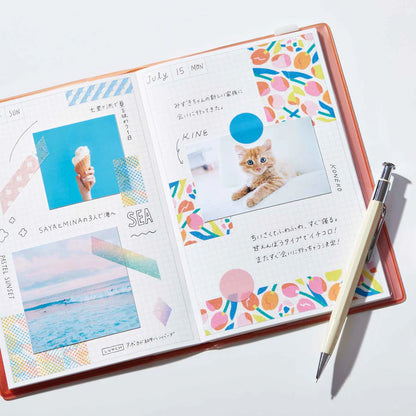 SUN
SAYAとMINAの3人で海へ
SEA
PASTEL SUNSET
LUNCH
July 15 MON
みずきちゃんの新しい家族に
会いに行ってきた。
KINE
KONEKO
ちいさくてふわっふわ。すぐ寝る。
甘えんぼうタイプでイチコロ!
またすぐ会いに行っちゃう決定!